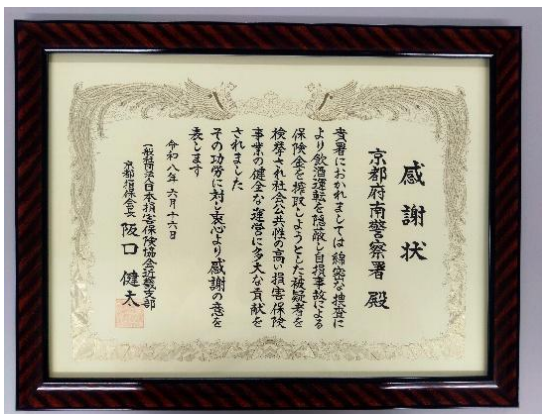 感謝状
京都府南警察署 殿
貴署におかれましては綿密な捜査に
より飲酒運転を隠蔽し自損事故による
保険金を搾取しようとした被疑者を
検挙され社会公共性の高い損害保険
事業の健全な運営に多大な貢献を
されました
その功労に対し衷心より感謝の意を
表します
令和八年六月十六日
一般社団法人日本損害保険協会近畿支部
京都損保会会長 阪口 健太